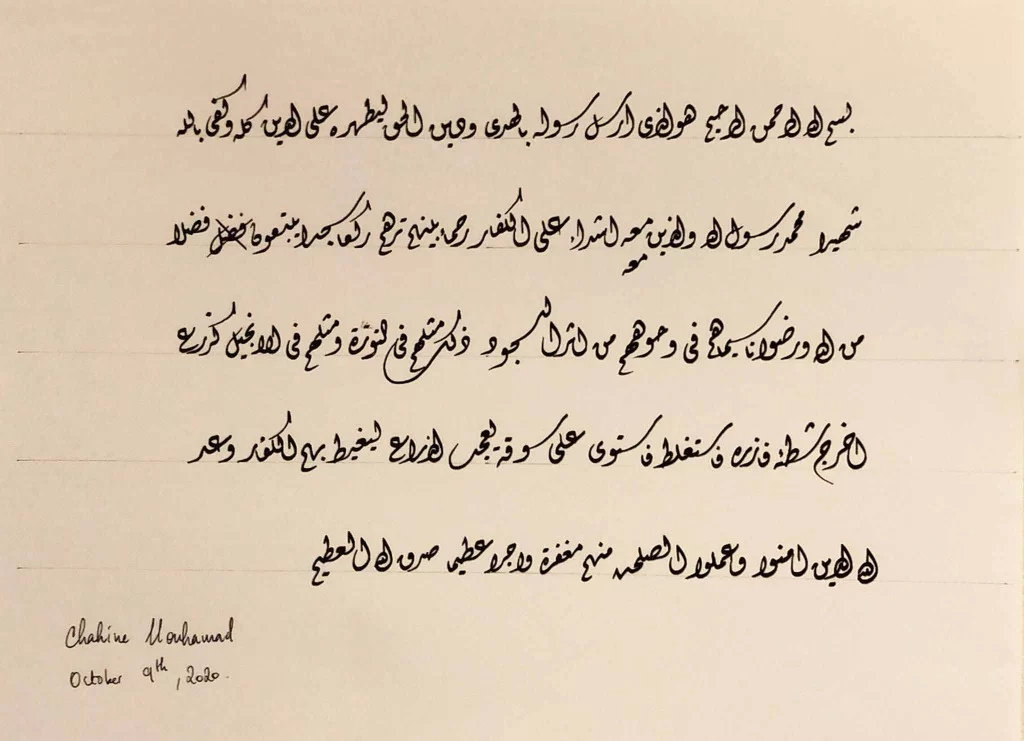 بسم الله الرحمن الرحيم هو الذى ارسل رسوله بالهدى ودين الحق ليظهره على الدين كله وكفى بالله
شهيدا محمد رسول الله والذين معه اشداء على الكفار رحماء بينهم ترهم ركعا سجدا يبتغون فضلا فضلا
معه
من الله ورضوانا سيماهم فى وجوههم من اثر السجود ذلك مثلهم فى التورٰة ومثلهم فى الانجيل كزرع
اخرج شطئه فازره فاستغلظ فاستوى على سوقه يعجب الزراع ليغيظ بهم الكفار وعد
الله الذين امنوا وعملوا الصلحت منهم مغفرة واجرا عظيما صدق الله العظيم
Chahine Mouhamad
October 9th, 2020.